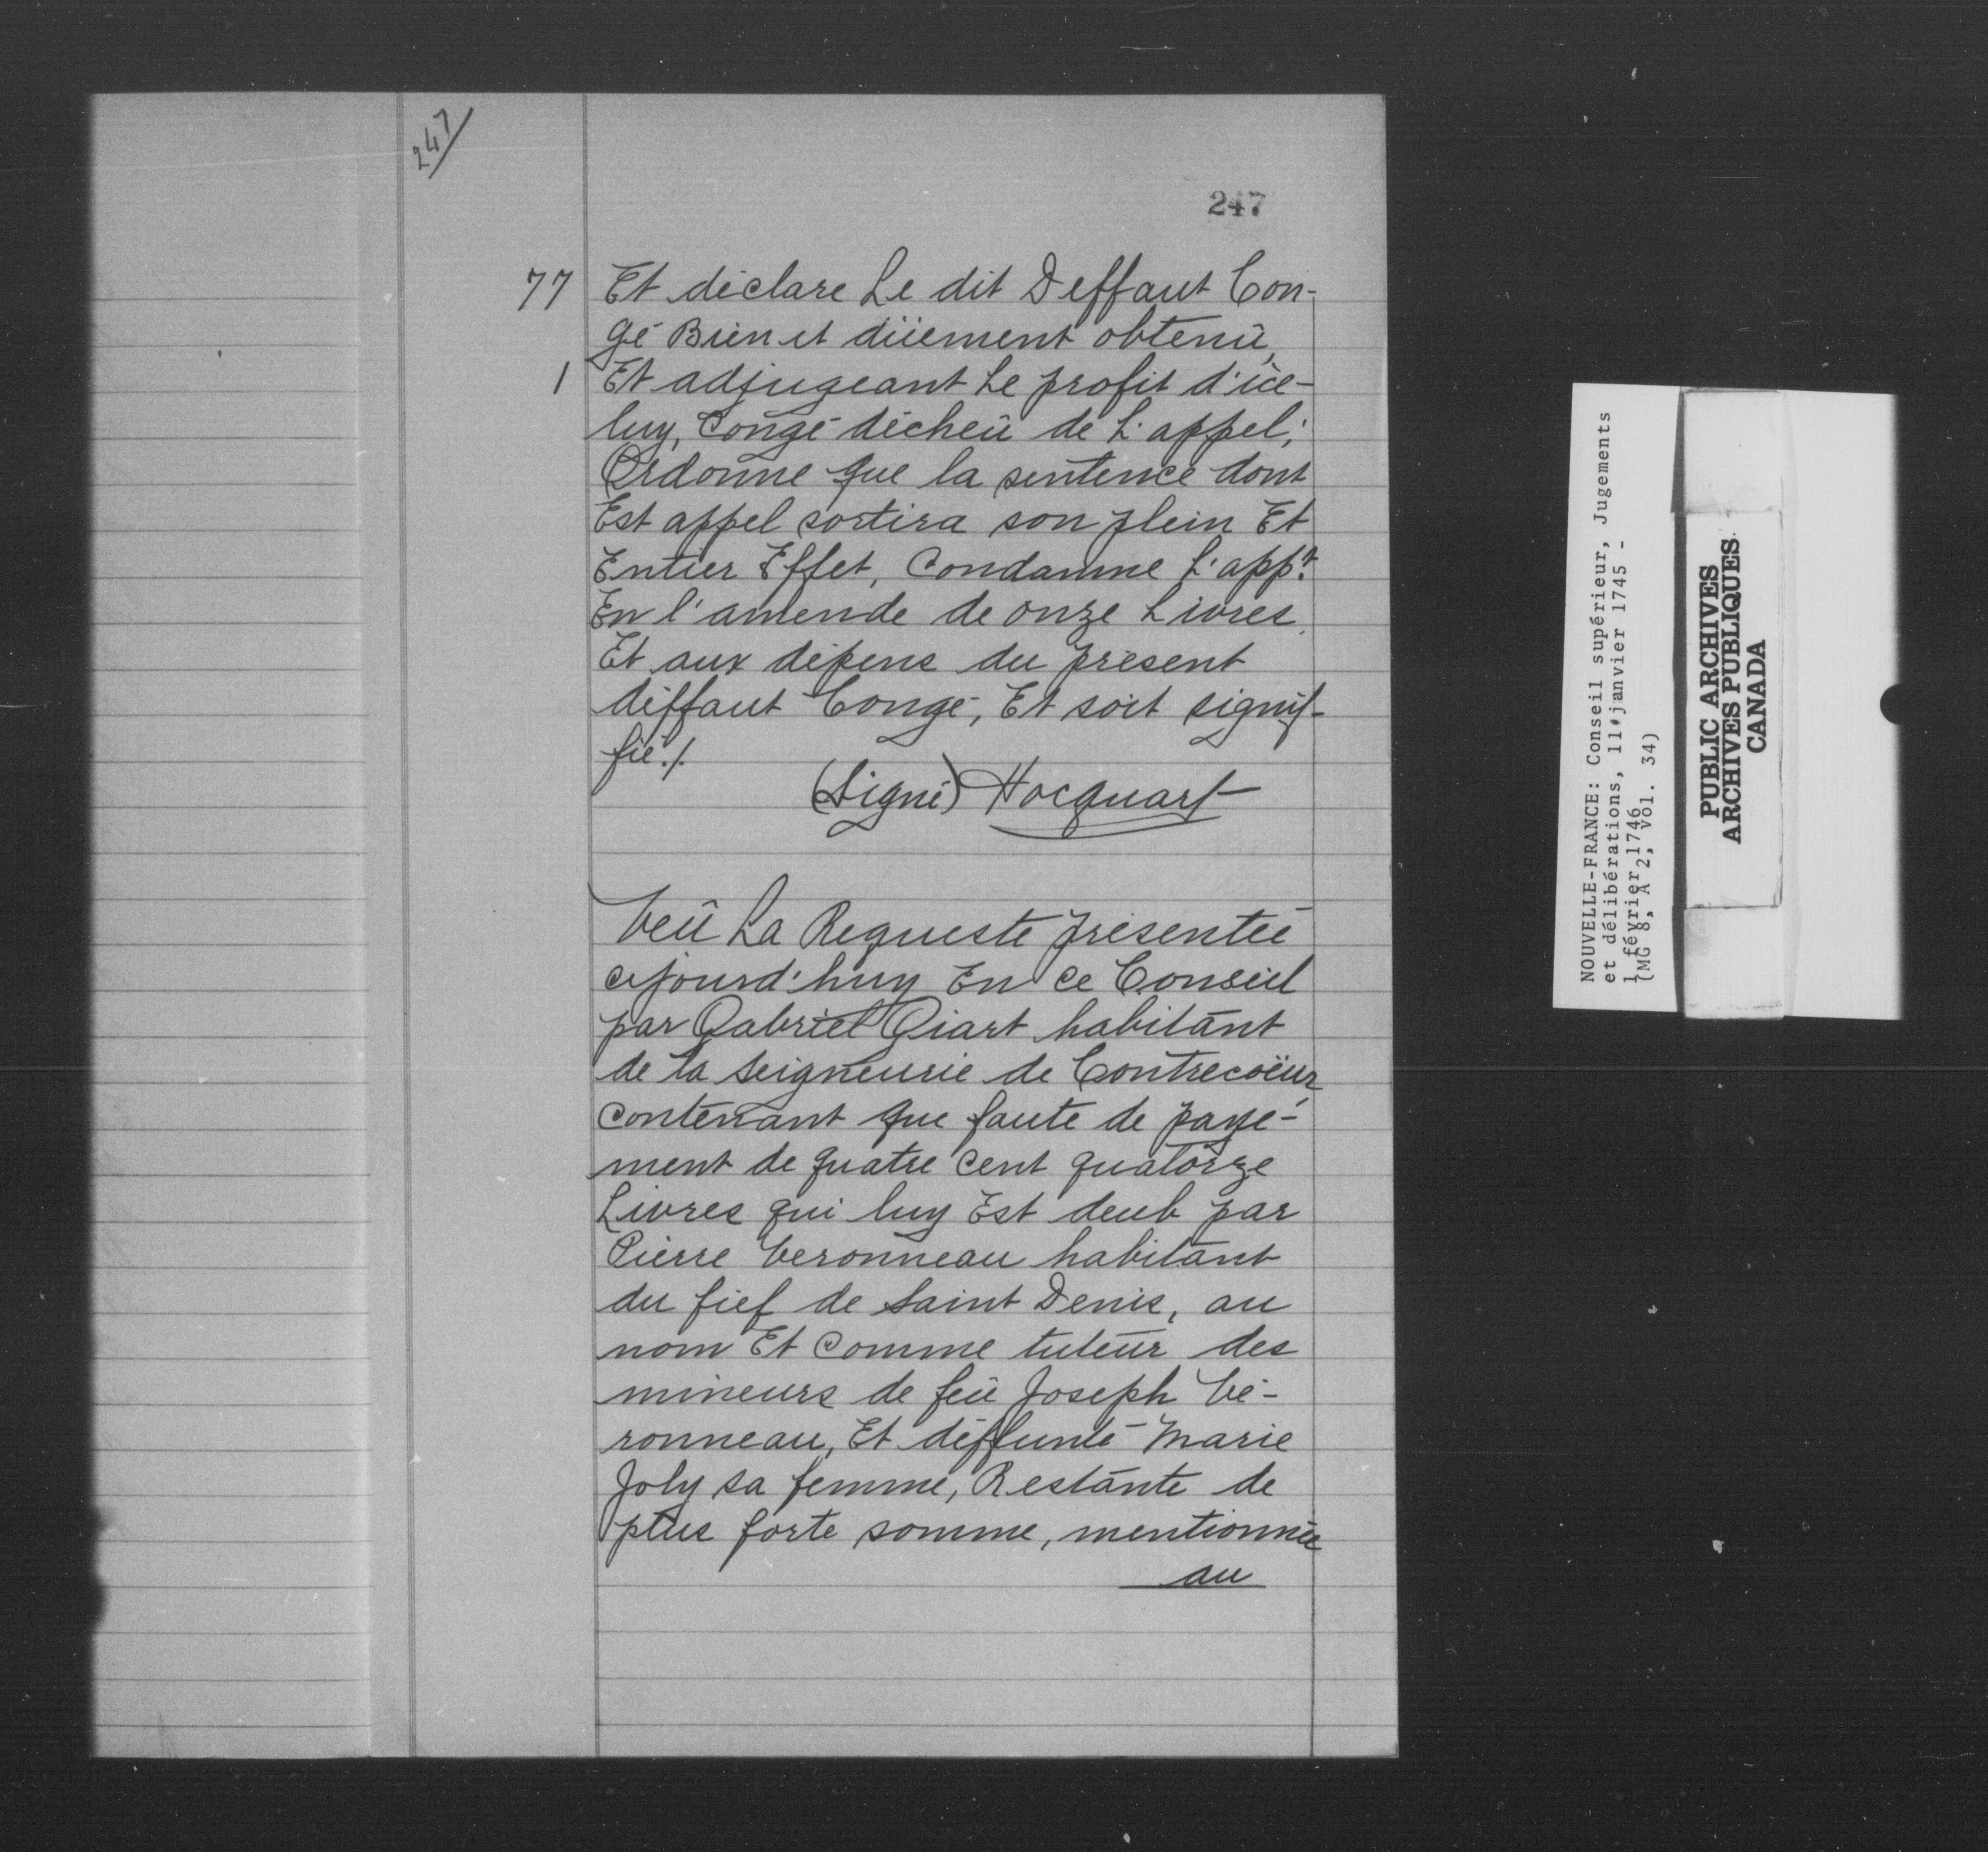 247
247
77 Et déclare Le dit Deffaut Con-
gé Bien et düement obtenû,
1 Et adjugeant Le profit d'ice-
luy, Congé décheû de L'appel;
Ordonne que la sentence dont
Est appel sortira son plein Et
Entier Effet, Condamne L'appt.
En l'amende de onze Livres,
Et aux dépens du présent
déffaut Congé, Et soit signif-
fié./.
(Signé) Hocquart
Veû La Requeste présentée
cejourd'huy En ce Conseil
par Gabriel Giart habitant
de la Seigneurie de Contrecoëur
contenant que faute de payé-
ment de quatre Cent quatorze
Livres qui luy Est deub par
Pierre Veronneau habitant
du fief de Saint Denis, au
nom Et Comme tuteur des
mineurs de feû Joseph Vé-
ronneau, Et déffunte Marie
Joly sa femme, Restante de
plus forte somme, mentionnée
au
NOUVELLE-FRANCE: Conseil supérieur, Jugements
et délibérations, 11 janvier 1745 -
1 février 1746
(MG 8, A 2, vol. 34)
PUBLIC ARCHIVES
ARCHIVES PUBLIQUES
CANADA